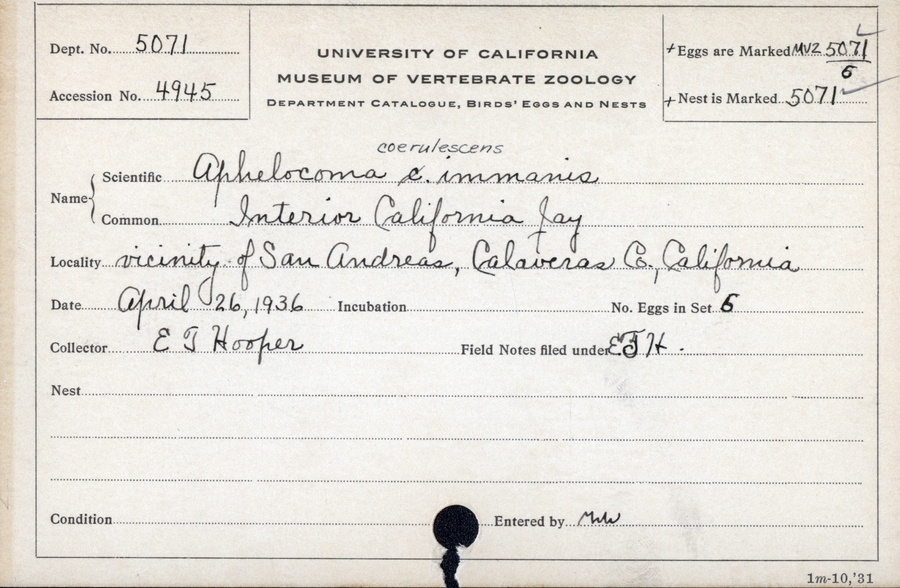 Dept. No. 5071
UNIVERSITY OF CALIFORNIA
MUSEUM OF VERTEBRATE ZOOLOGY
DEPARTMENT CATALOGUE, BIRDS' EGGS AND NESTS
Accession No. 4945
+ Eggs are Marked MVZ 5071
6
+ Nest is Marked 5071
coerulescens
Name { Scientific Aphelocoma c. immanis
Common Interior California Jay
Locality vicinity of San Andreas, Calaveras Co., California
Date April 26, 1936 Incubation No. Eggs in Set 6
Collector E T Hooper Field Notes filed under ETH.
Nest
Condition Entered by
1m-10,'31